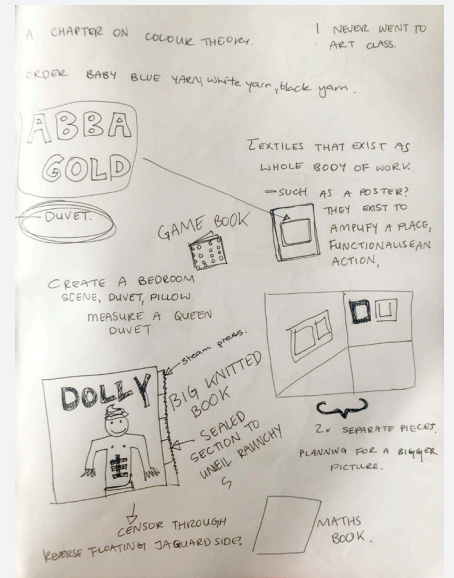 A CHAPTER ON COLOUR THEORY.
I NEVER WENT TO
ART CLASS.
ORDER BABY BLUE YARN, white yarn, black yarn.
ABBA
GOLD
DUVET.
TEXTILES THAT EXIST AS
WHOLE BODY OF WORK.
- SUCH AS A POSTER?
THEY EXIST TO
AMPLIFY A PLACE,
FUNCTIONALISE AN
ACTION,
GAME BOOK
CREATE A BEDROOM
SCENE, DUVET, PILLOW
MEASURE A QUEEN
DUVET
steam press.
DOLLY
BIG KNITTED
BOOK
SEALED
SECTION TO
UNVEIL RAUNCHY
S
2x SEPARATE PIECES.
PLANNING FOR A BIGGER
PICTURE.
CENSOR THROUGH
REVERSE FLOATING JAQUARD SIDE?
MATHS
BOOK.